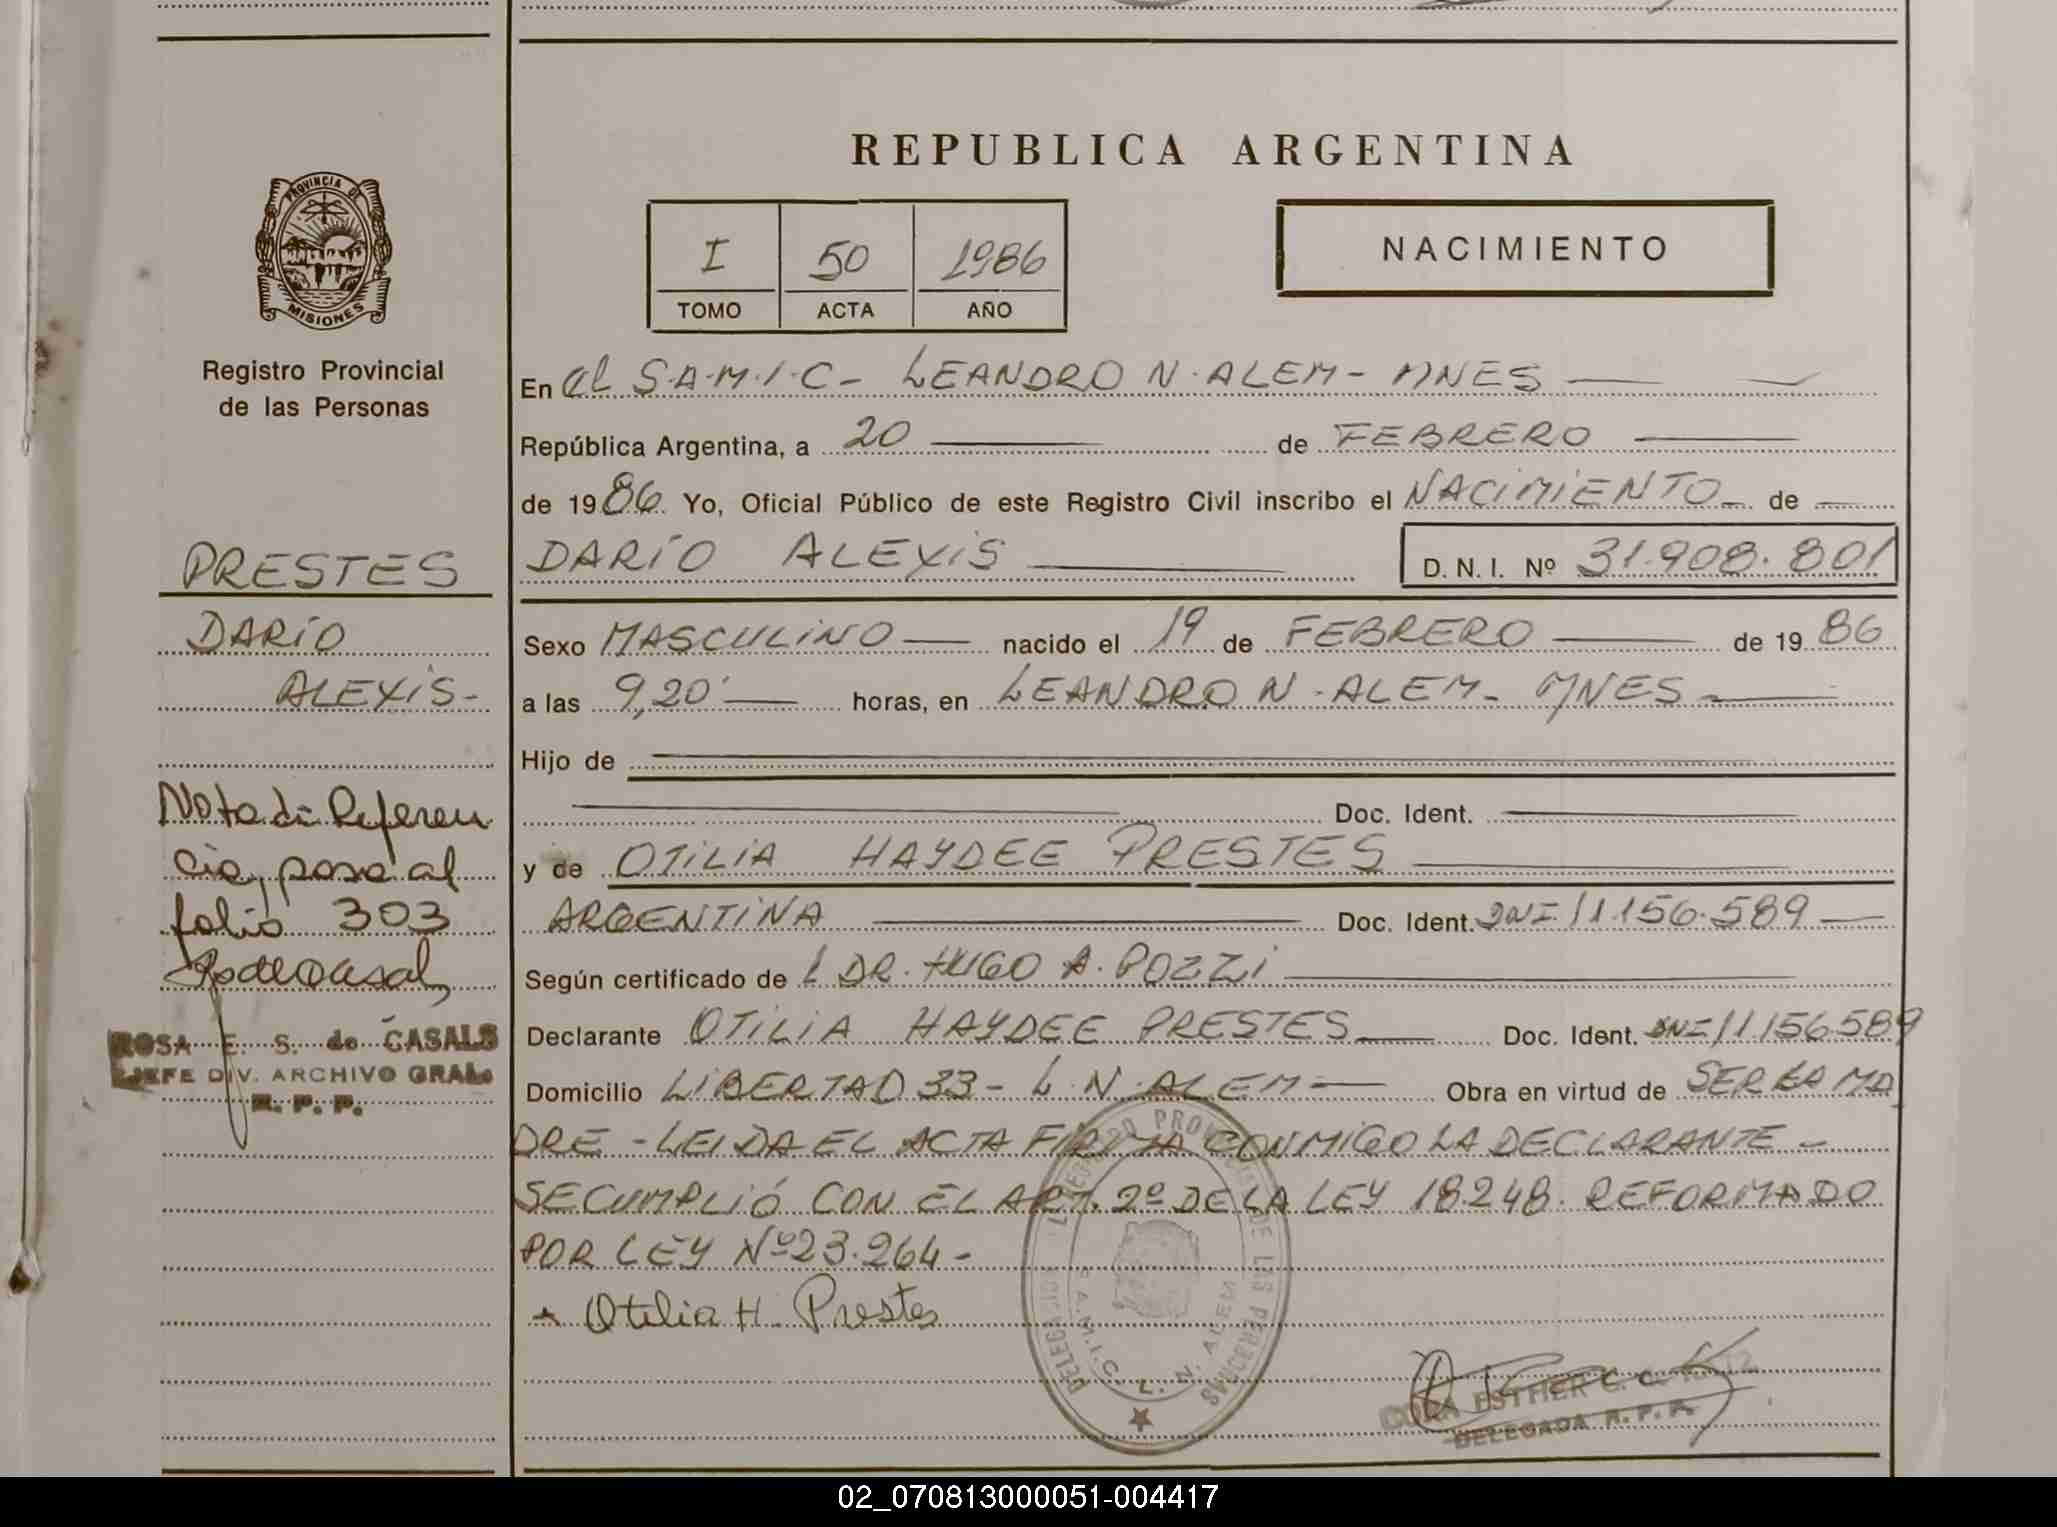 REPUBLICA ARGENTINA
PROVINCIA DE
MISIONES
Registro Provincial
de las Personas
I 50 1986
TOMO ACTA AÑO
NACIMIENTO
En el S.A.M.I.C- LEANDRO N. ALEM- MNES
República Argentina, a 20 de FEBRERO
de 1986. Yo, Oficial Público de este Registro Civil inscribo el NACIMIENTO de
DARÍO ALEXIS D. N. I. Nº 31.908.801
Sexo MASCULINO nacido el 19 de FEBRERO de 1986
a las 9,20' horas, en LEANDRO N. ALEM- MNES
Hijo de
Doc. Ident.
y de OTILIA HAYDEE PRESTES
ARGENTINA Doc. Ident. DNI 11.156.589
Según certificado de L DR. HUGO A. POZZI
Declarante OTILIA HAYDEE PRESTES Doc. Ident. DNI 11.156.589
Domicilio LIBERTAD 33- L.N. ALEM Obra en virtud de SER LA MA
DRE - LEIDA EL ACTA FIRMA CONMIGO LA DECLARANTE-
SE CUMPLIÓ CON EL ART. 2º DE LA LEY 18.248. REFORMADO
POR LEY Nº 23.264-
Otilia H. Prestes
PRESTES
DARÍO
ALEXIS-
Nota de Referen
cia, pasa al
folio 303
ROSA E. S. de CASALS
JEFE DIV. ARCHIVO GRAL.
R. P. P.
DELEGACION REGISTRO PROVINCIAL DE LAS PERSONAS
S.A.M.I.C. L. N. ALEM
ESTHER C. C.
DELEGADA R. P. P.
02_070813000051-004417